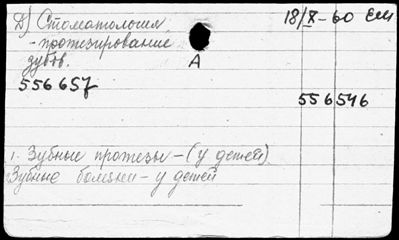 Д) Стоматология 18/X-60 Ели
- протезирование
зубов. А
556657
556546
1. Зубные протезы - (у детей)
Зубные болезни - у детей